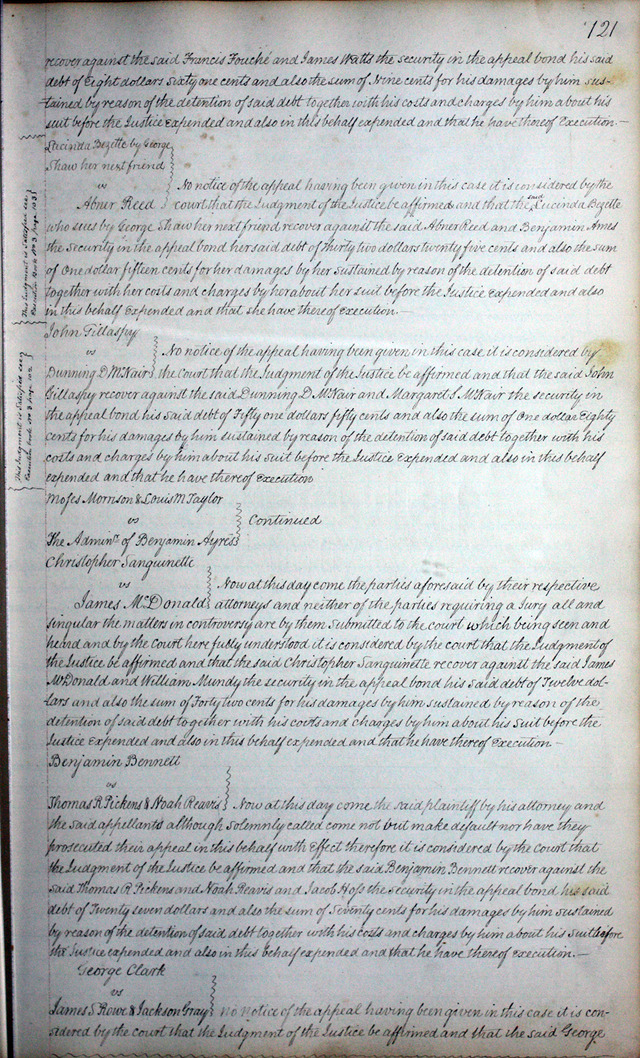 121
recover against the said Francis Fouché and James Watts the security in the appeal bond his said
debt of Eight dollars Sixty one cents and also the sum of Nine cents for his damages by him sus-
tained by reason of the detention of said debt together with his costs and charges by him about his
suit before the Justice Expended and also in this behalf expended and that he have thereof Execution.—
Lucinda Bezette by George
Shaw her next friend
vs No notice of the appeal having been given in this case it is considered by the
Abner Reed court that the Judgment of the Justice be affirmed and that the said Lucinda Bezette
who sues by George Shaw her next friend recover against the said Abner Reed and Benjamin Ames
the Security in the appeal bond her said debt of thirty two dollars twenty five cents and also the sum
of One dollar fifteen cents for her damages by her sustained by reason of the detention of said debt
together with her costs and charges by her about her suit before the Justice Expended and also
in this behalf Expended and that she have thereof Execution.—
This Judgment is satisfied see
Execution Book No 3 page 103
John Gillaspy
vs No notice of the appeal having been given in this case it is considered by
Dunning D McNair the Court that the Judgment of the Justice be affirmed and that the said John
Gillaspy recover against the said Dunning D. McNair and Margaret S. McNair the security in
the appeal bond his Said debt of Fifty one dollars fifty cents and also the sum of One dollar Eighty
cents for his damages by him sustained by reason of the detention of said debt together with his
costs and charges by him about his suit before the Justice Expended and also in this behalf
expended and that he have thereof Execution
This Judgment is Satisfied see
Execution book No 3 page 102
Moses Morrison & Louis M Taylor
vs Continued
The Adminrs of Benjamin Ayres
Christopher Sanguinette
vs Now at this day come the parties aforesaid by their respective
James McDonald attorneys and neither of the parties requiring a Jury all and
singular the matters in controversy are by them Submitted to the court which being seen and
heard and by the Court here fully understood it is considered by the court that the Judgment of
the Justice be affirmed and that the said Christopher Sanguinette recover against the said James
McDonald and William Mundy the security in the appeal bond his said debt of Twelve dol-
lars and also the sum of Forty two cents for his damages by him sustained by reason of the
detention of said debt together with his costs and charges by him about his Suit before the
Justice Expended and also in this behalf expended and that he have thereof Execution—
Benjamin Bennett
vs
Thomas R Pickens & Noah Reavis Now at this day come the said plaintiff by his attorney and
the said appellants although Solemnly called come not but make default nor have they
prosecuted their appeal in this behalf with Effect therefore it is considered by the Court that
the Judgment of the Justice be affirmed and that the said Benjamin Bennett recover against the
said Thomas R Pickens and Noah Reavis and Jacob Hoss the Security in the appeal bond his said
debt of Twenty seven dollars and also the sum of Seventy cents for his damages by him Sustained
by reason of the detention of said debt together with his costs and charges by him about his Suit before
the Justice expended and also in this behalf expended and that he have thereof Execution.—
George Clark
vs
James S Rowe & Jackson Gray No Notice of the appeal having been given in this case it is con-
sidered by the court that the Judgment of the Justice be affirmed and that the said George